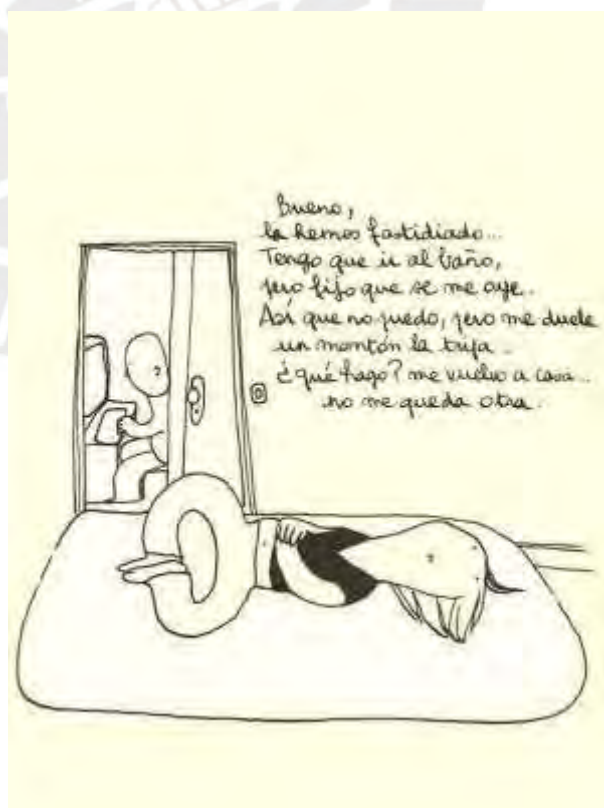 Bueno,
la hemos fastidiado...
Tengo que ir al baño,
pero fijo que se me oye..
Así que no puedo, pero me duele
un montón la tripa..
¿qué hago? me vuelvo a casa..
no me queda otra.